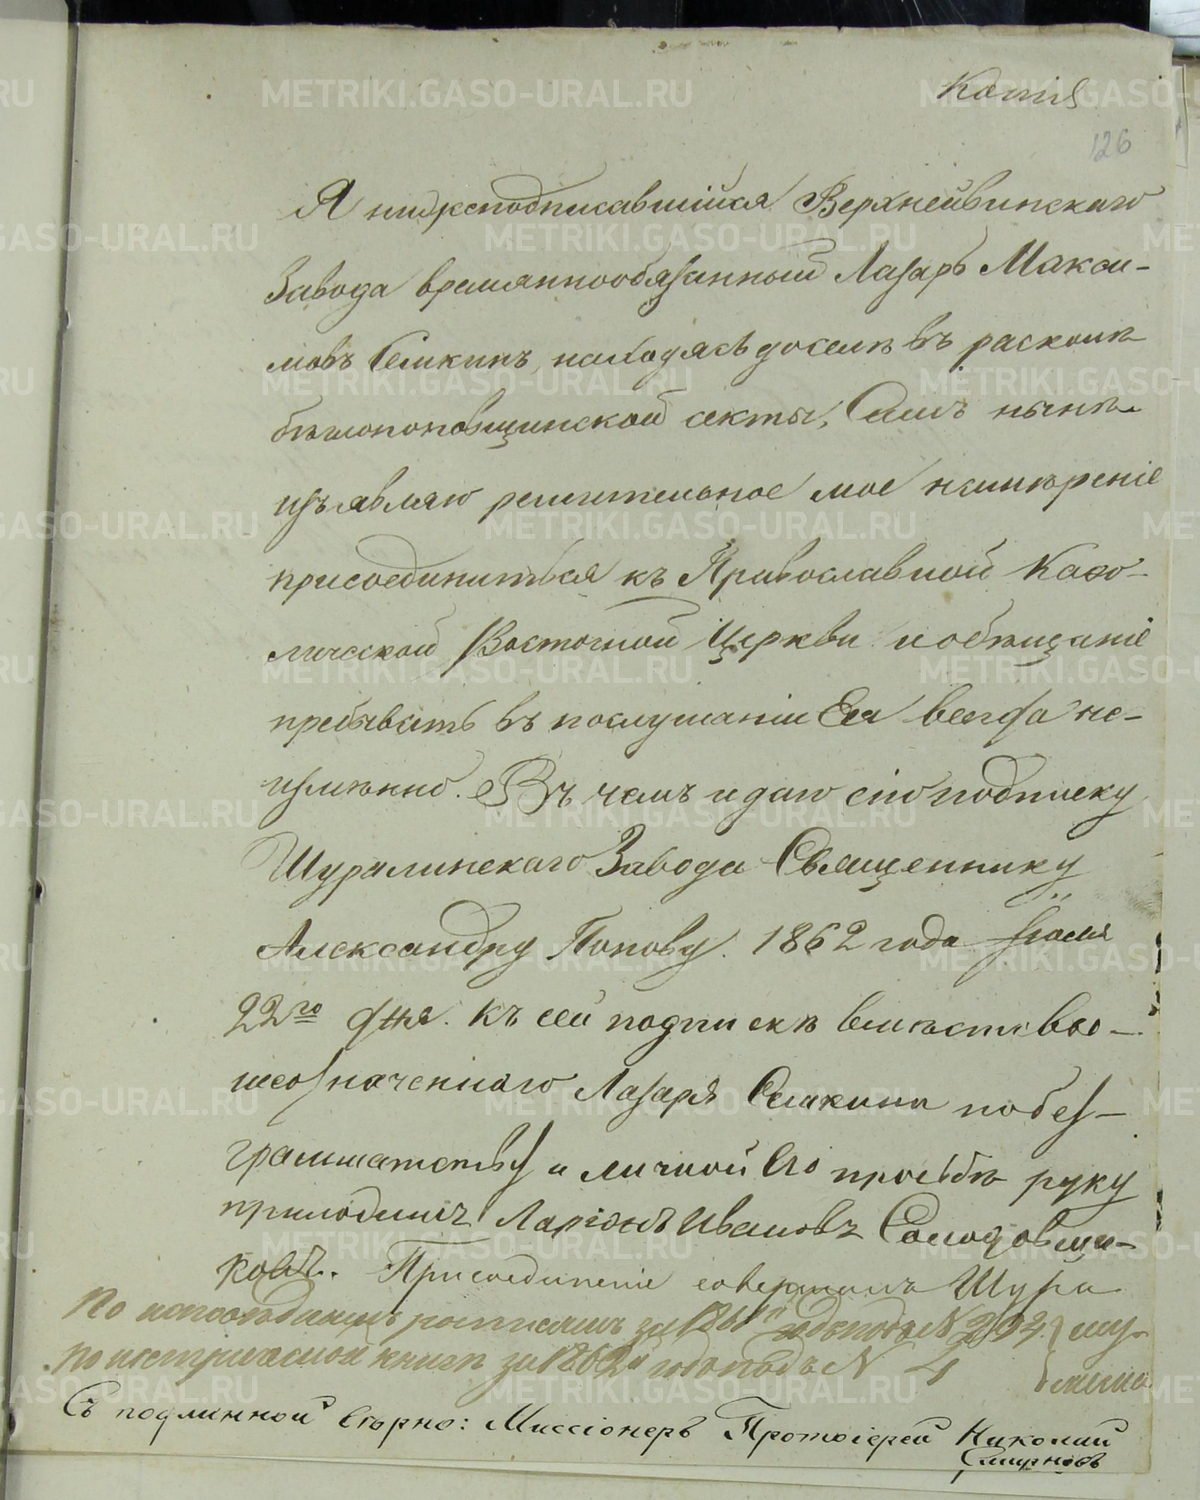 Копія
126
Я нижеподписавшійся Верхнейвинскаго
Завода временнообязанный Лазарь Макси-
мовъ Семкинъ, находясь доселѣ въ расколѣ
бѣглопоповщинской секты, Симъ нынѣ
изъявляю решительное мое намѣреніе
присоединиться къ Православной Каѳо-
лической Восточной Церкви и обѣщаніе
пребывать въ послушаніи Ея всегда не-
измѣнно. Въ чемъ и даю сію подписку
Шуралинскаго Завода Священнику
Александру Попову. 1862 года Іюля
22го дня. Къ сей подпискѣ вмѣсто вы-
шеозначеннаго Лазаря Семкина по без-
грамматству и личной Его прозьбѣ руку
приложилъ Ларіонъ Ивановъ Солодовщи-
ковъ. Присоединеніе совершилъ Шура
По исповѣднымъ росписямъ за 1861 годъ подъ № 292.
По метрической книгѣ за 1862 годъ подъ № 4
Съ подлинной вѣрно: Миссіонеръ Протоіерей Николай
Смирновъ
METRIKI.GASO-URAL.RU